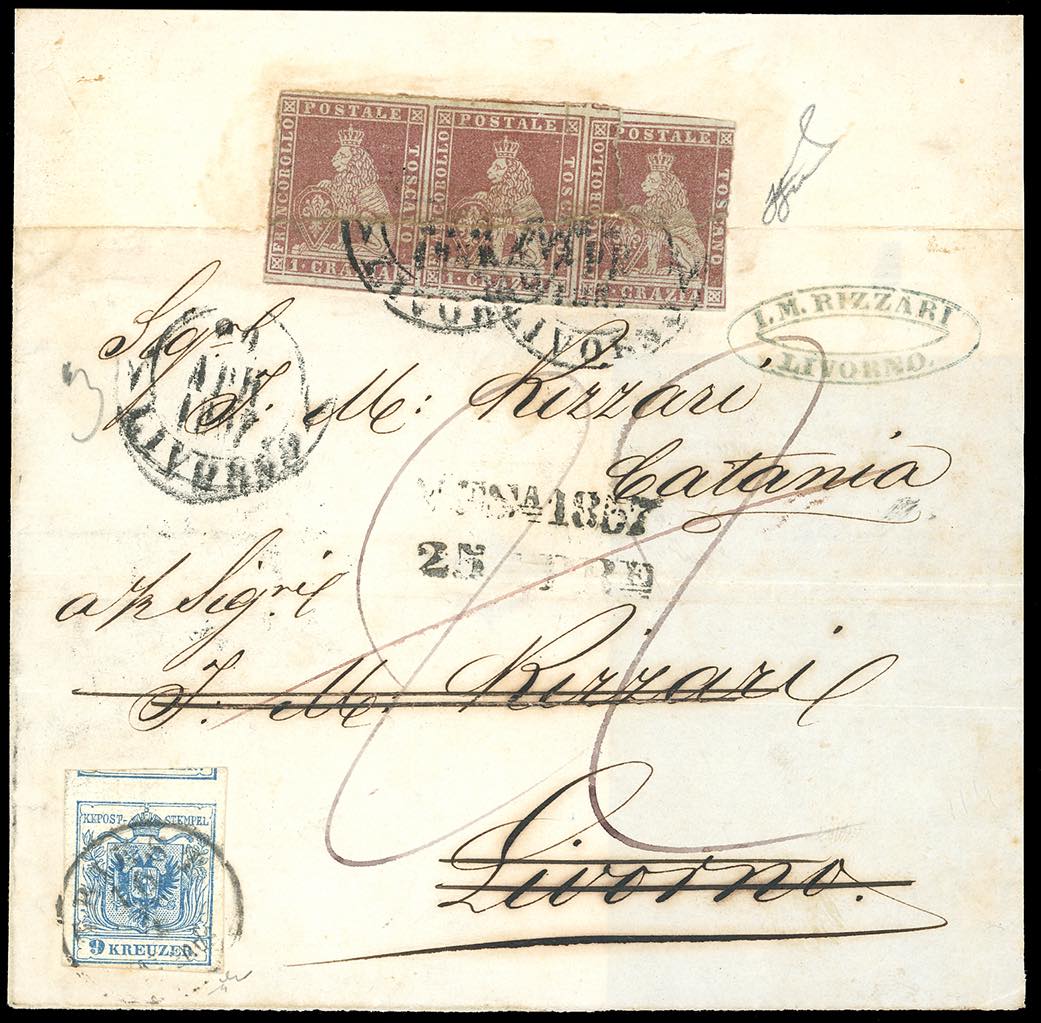 FRANCOBOLLO POSTALE TOSCANO
1 · CRAZIA
FRANCOBOLLO POSTALE TOSCANO
1 · CRAZIA
FRANCOBOLLO POSTALE TOSCANO
1 · CRAZIA
LIVORNO
LIVORNO
I. M. RIZZARI
LIVORNO.
3
APR
1857
LIVORNO
J. M: Rizzari
Catania
1857
25
J. M. Rizzari
Livorno.
KKPOST-STEMPEL
9 KREUZER